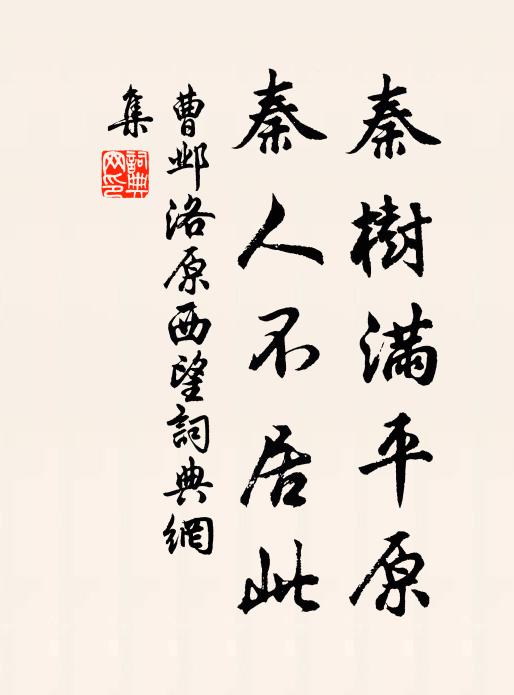 秦樹滿平原
秦人不居此
曹邺洛原西望詞典網
集
詞典
网印